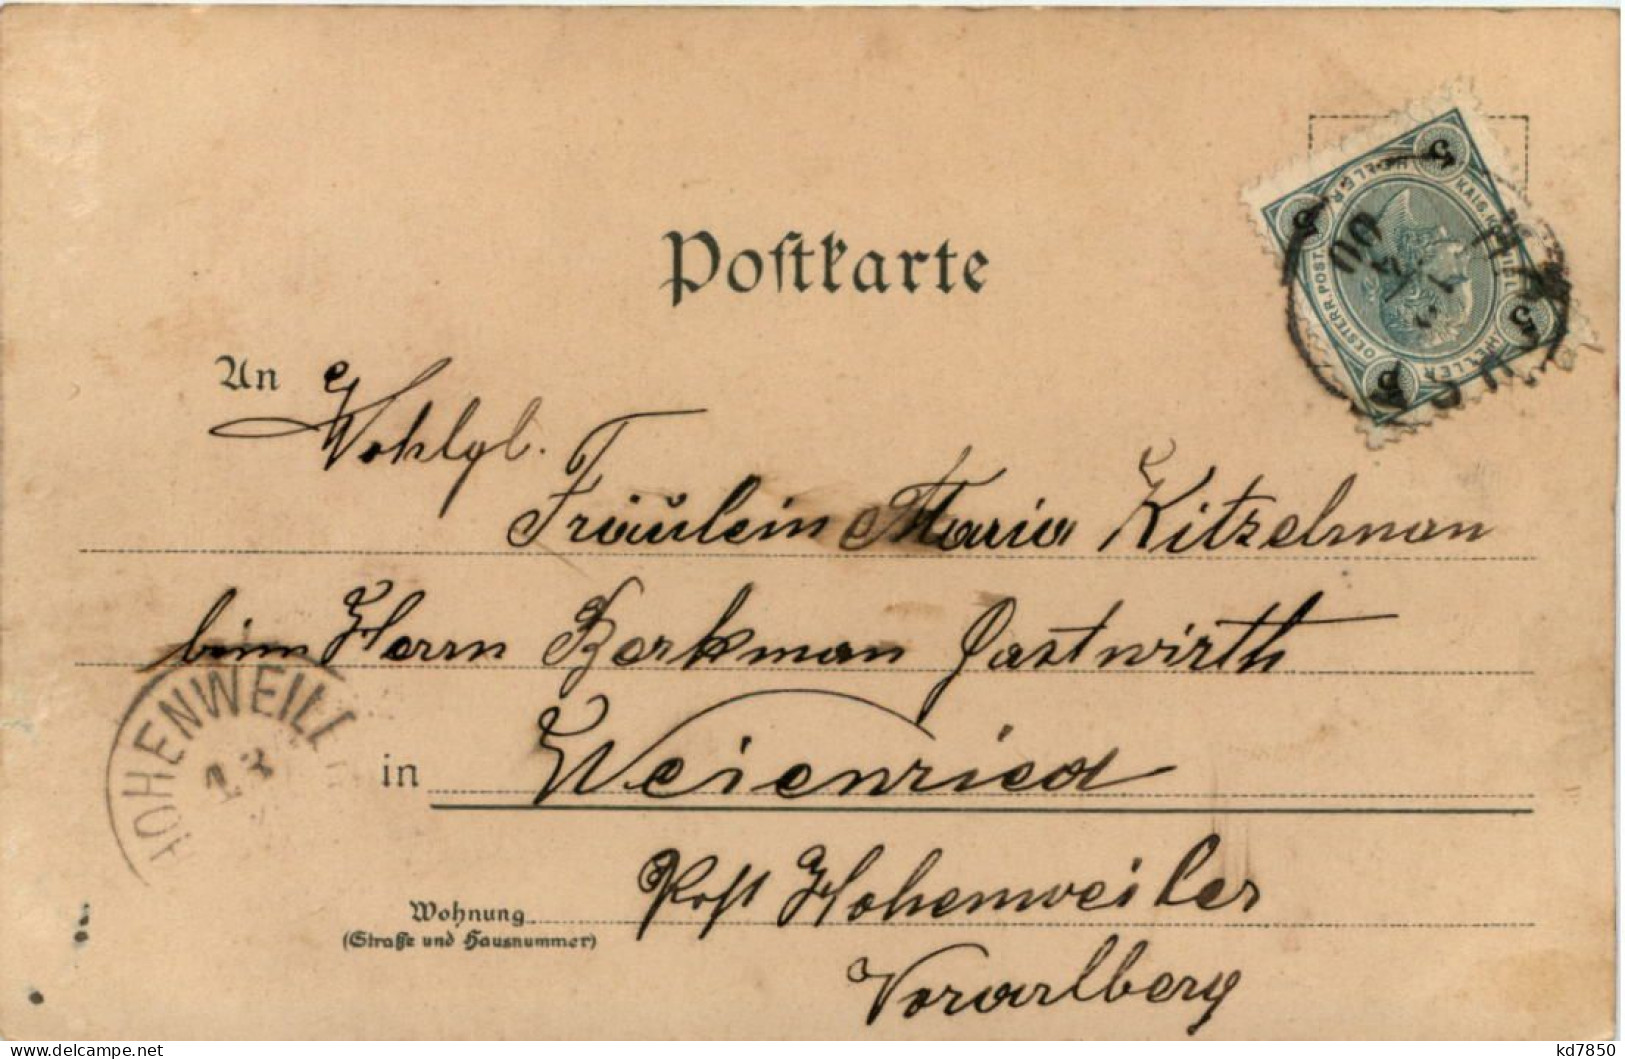 Postkarte
An Wohlgb.
Fräulein Maria Kitzelman
beim Herrn Berkman Gastwirth
in Weienried
Post Hohenweiler
Wohnung
(Straße und Hausnummer)
Vorarlberg
HOHENWEILER
13
5 HELLER 5
KAIS. KÖNIGL.
OESTERR. POST.
5 HELLER 5
00
delcampe.net
kd7850